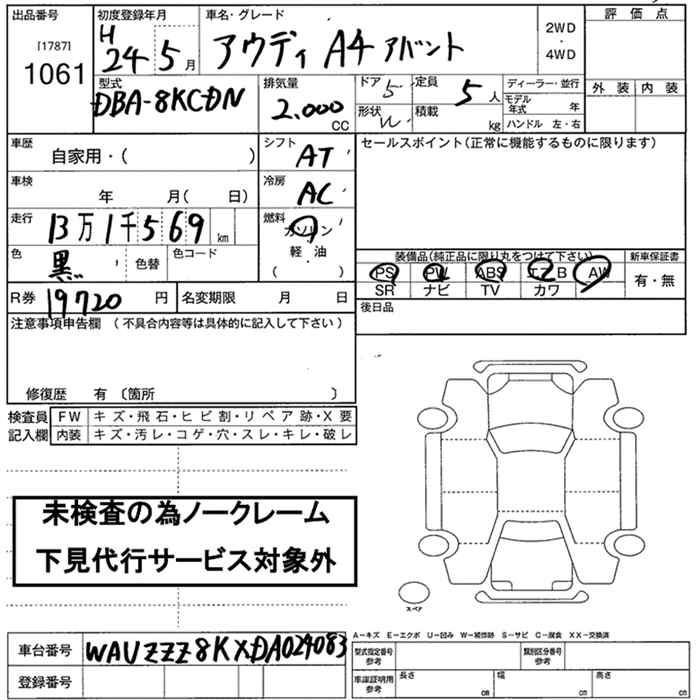 出品番号 初度登録年月 車名・グレード 評価点
[1787] 1061
H 24 5月 アウディ A4 アバント 2WD・4WD
外装 内装
型式 排気量 ドア 定員 ディーラー・並行
DBA-8KCDN 2.000 CC 5 5人 モデル年式 年
形状 W 積載 kg ハンドル 左・右
車歴 シフト セールスポイント(正常に機能するものに限ります)
自家用・( ) AT
車検 冷房
年 月( 日) AC
走行 燃料
13万1千569km ガソリン
色 色コード 軽油
黒 色替 ( )
装備品(純正品に限り丸をつけて下さい) 新車保証書
PS PW ABS エアB AW 有・無
SR ナビ TV カワ
R券 19720円 名変期限 月 日 後日品
注意事項申告欄 (不具合内容等は具体的に記入して下さい)
修復歴 有 〔箇所 〕
検査員 FW キズ・飛石・ヒビ割・リペア跡・X要
記入欄 内装 キズ・汚レ・コゲ・穴・スレ・キレ・破レ
未検査の為ノークレーム
下見代行サービス対象外
スペア
A-キズ E-エクボ U-凹み W-補修跡 S-サビ C-腐食 XX-交換済
車台番号 WAUZZZ8KXDA024083
型式指定番号 参考 類別区分番号 参考
登録番号
車庫証明用 参考 長さ cm 幅 cm 高さ cm